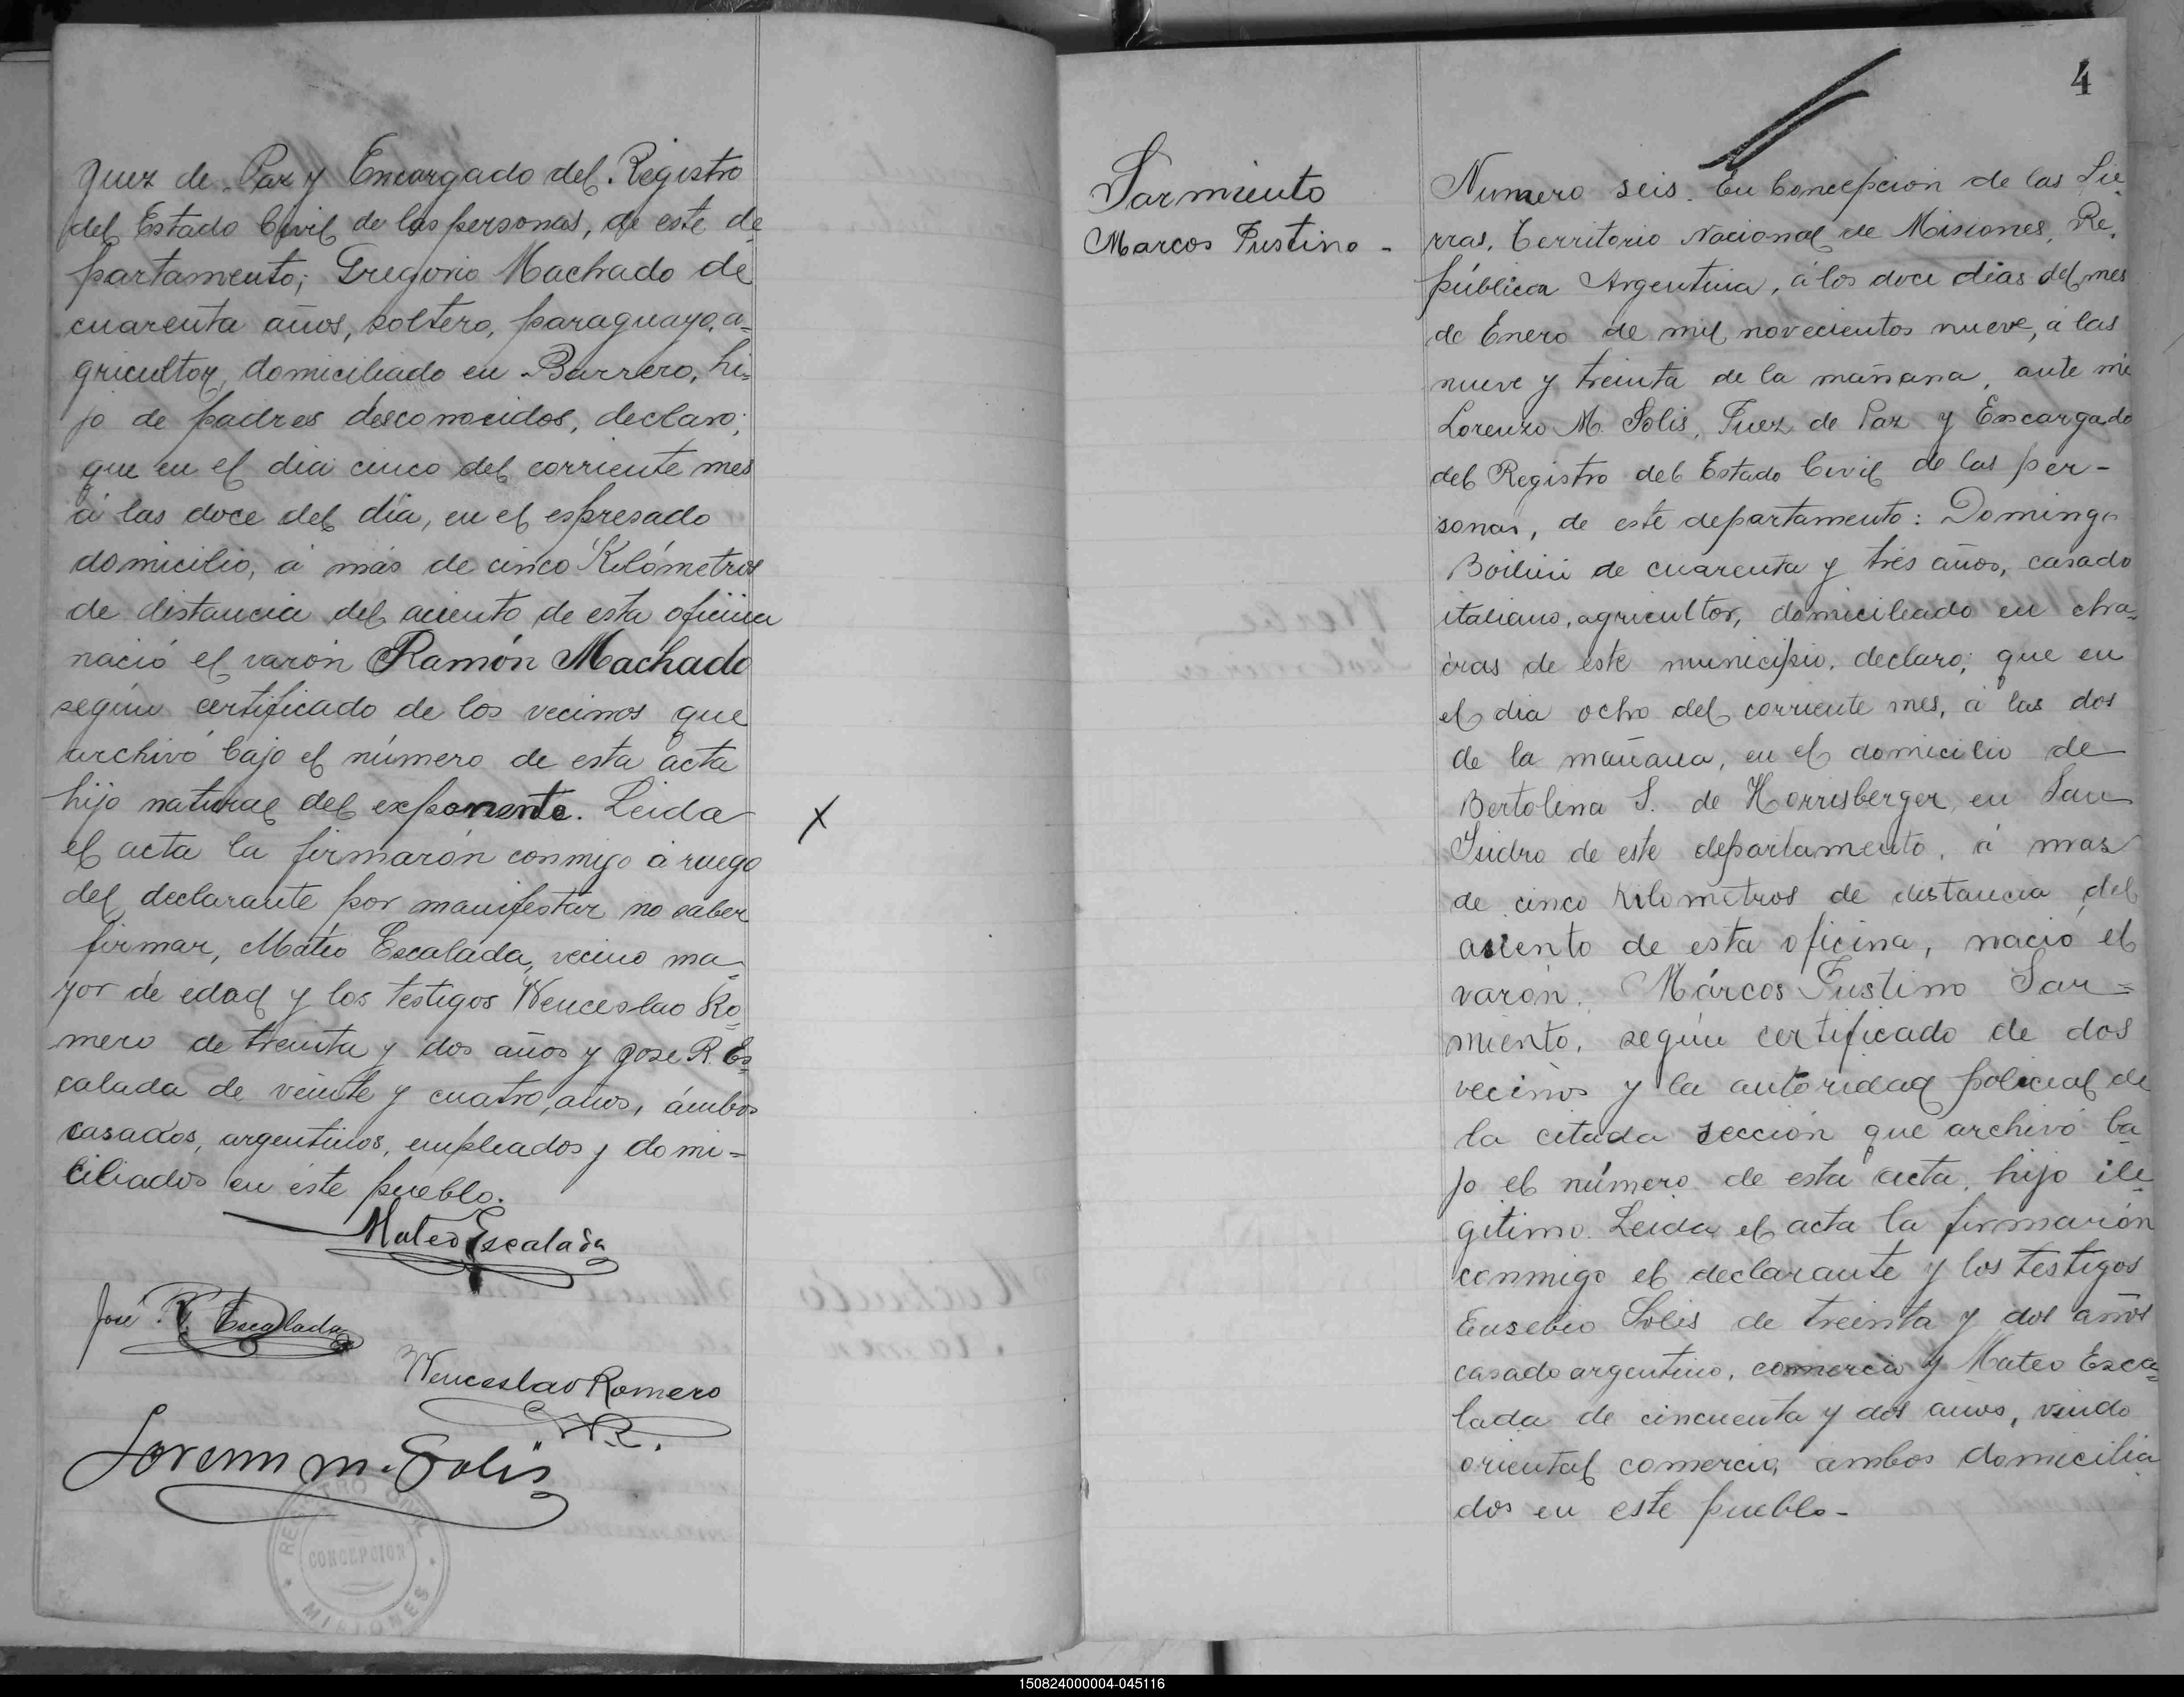 Juez de Paz y Encargado del Registro
del Estado Civil de las personas, de este de
partamento; Gregorio Machado de
cuarenta años, soltero, paraguayo, a=
gricultor, domiciliado en Barrero, hi=
jo de padres desconocidos, declaro;
que en el dia cinco del corriente mes
á las doce del día, en el espresado
domicilio, á más de cinco Kilómetros
de distancia del aciento de esta oficina
nació el varón Ramón Machado
según certificado de los vecinos que
archivó bajo el número de esta acta
hijo natural del exponente. Leida
el acta la firmarón conmigo á ruego
del declarante por manifestar no saber
firmar, Matéo Escalada, vecino ma=
yor de edad y los testigos Wenceslao Ro=
mero de treinta y dos años y Jose R. Es=
calada de veinte y cuatro, años, ámbos
casados, argentinos, empleados y domi=
ciliados en éste pueblo.
Mateo Escalada
José R. Escalada
Wenceslao Romero
W.R.
Lorenzo M. Solis
REGISTRO CIVIL
CONCEPCION
MISIONES
4
Sarmiento
Marcos Justino -
Numero seis. En Concepcion de las Sie
rras, Territorio Nacional de Misiones, Re,
pública Argentina, á los doce dias del mes
de Enero de mil novecientos nueve, á las
nueve y treinta de la mañana, ante mi
Lorenzo M. Solis, Juez de Paz y Encargado
del Registro del Estado Civil de las per-
sonas, de este departamento: Domingo
de cuarenta y trés años, casado
italiano, agricultor, domiciliado en cha=
cras de este municipio, declaro; que en
el dia ocho del corriente mes, á las dos
de la mañana, en el domicilio de
Bertolina S. de Horrisberger, en San
Isidro de este departamento, á mas
de cinco Kilometros de distancia del
asiento de esta oficina, nació el
varón, Márcos Justino Sar=
miento, según certificado de dos
vecinos y la autoridad policial de
la citada sección que archivó ba
jo el número de esta acta, hijo ile
gitimo. Leida el acta la firmarón
conmigo el declarante y los testigos
Eusebio Solis de treinta y dos años
casado argentino, comercio y Mateo Esca=
lada de cincuenta y dos años, viudo
oriental comercio, ambos domicilia
dos en este pueblo-
150824000004-045116